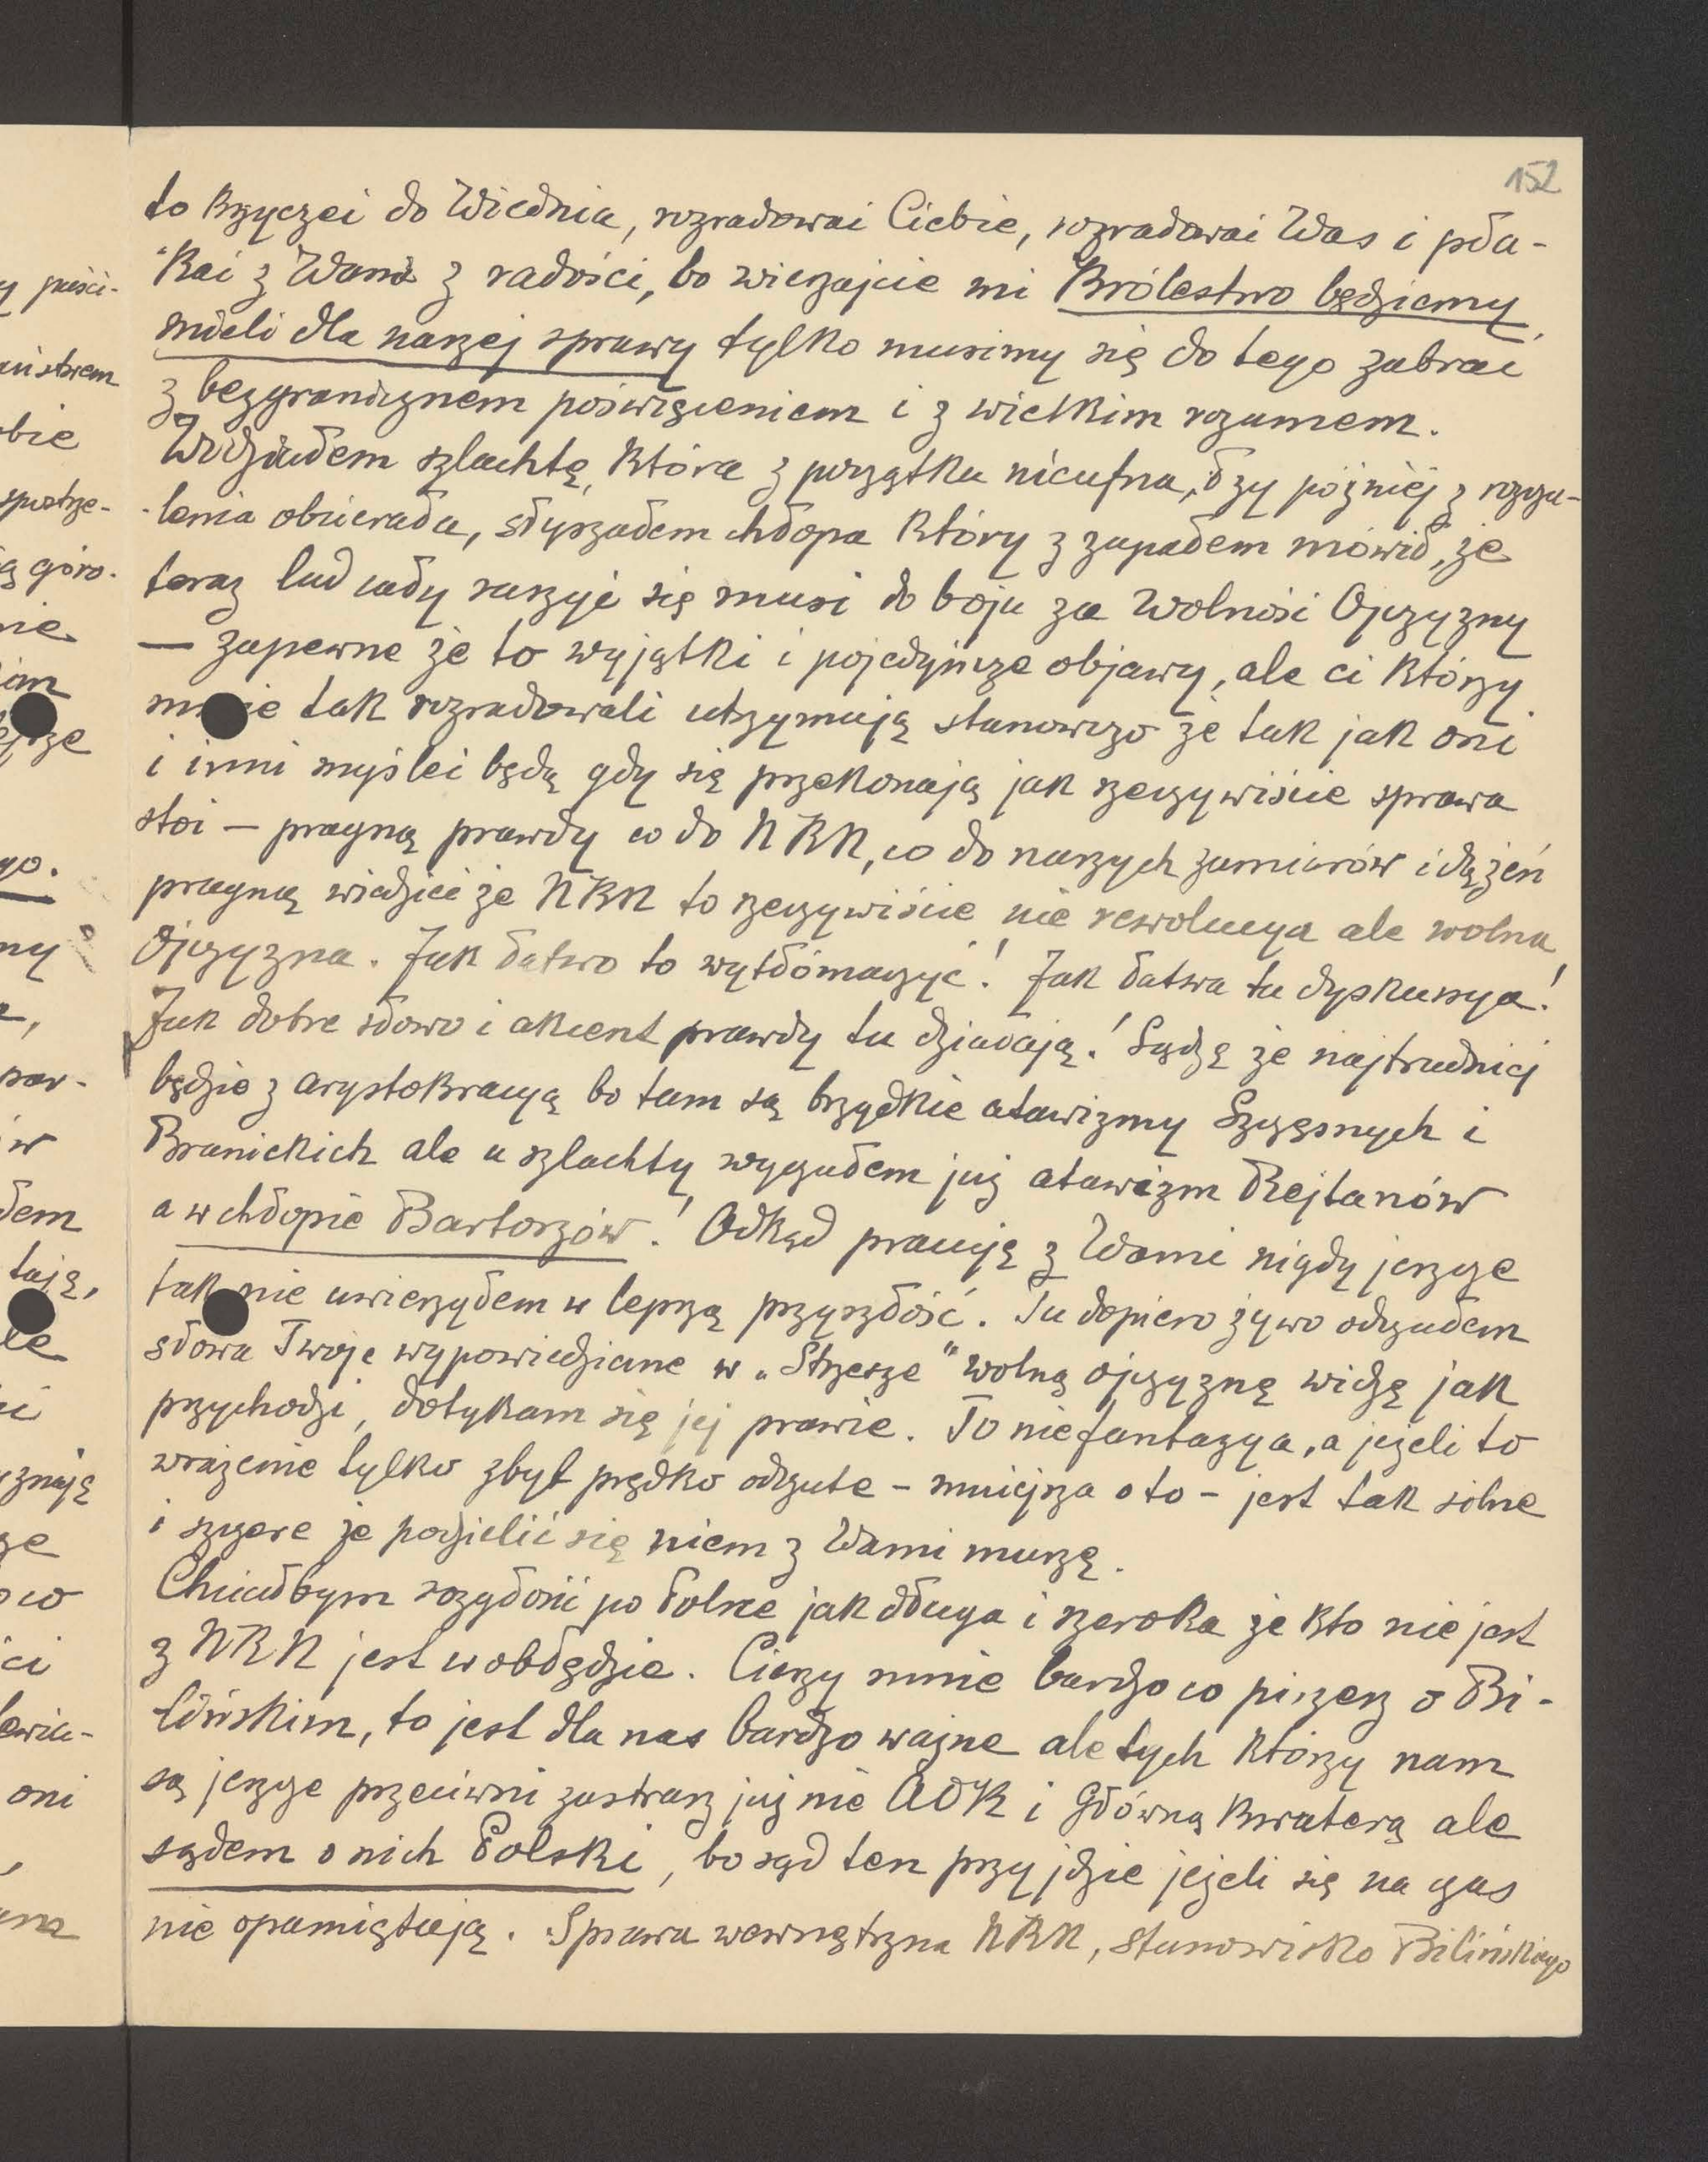 152
to krzyczeć do Wiednia, rozradować Ciebie, rozradować Was i pła-
kać z Wami z radości, bo wierzajcie mi Królestwo będziemy
mieli dla naszej sprawy tylko musimy się do tego zabrać
z bezgranicznem poświęceniem i z wielkim rozumem.
Widziałem szlachtę, która z początku nieufna, łzy później z rozczu-
lenia obcierała, słyszałem chłopa który z zapałem mówił, że
teraz lud cały ruszyć się musi do boju za Wolność Ojczyzny
— zapewne że to wyjątki i pojedyńcze objawy, ale ci którzy
mnie tak rozradowali utrzymują stanowczo że tak jak oni
i inni myśleć będą gdy się przekonają jak rzeczywiście sprawa
stoi — pragną prawdy co do NKN, co do naszych zamiarów i dążeń
pragną wiedzieć że NKN to rzeczywiście nie rewolucya ale wolna
Ojczyzna. Jak łatwo to wytłómaczyć! Jak łatwa tu dyskusya!
Jak dobre słowo i akcent prawdy tu działają! Sądzę że najtrudniej
będzie z arystokracyą bo tam są brzydkie atawizmy Szczęsnych i
Branickich ale u szlachty wyczułem już atawizm Rejtanów
a w chłopie Bartoszów! Odkąd pracuję z Wami nigdy jeszcze
tak nie uwierzyłem w lepszą przyszłość. Tu dopiero żywo odczułem
słowa Twoje wypowiedziane w „Strzesze" wolną ojczyznę widzę jak
przychodzi, dotykam się jej prawie. To nie fantazya, a jeżeli to
wrażenie tylko zbyt prędko odczute – mniejsza o to – jest tak silne
i szczere że podzielić się niem z Wami muszę.
Chciałbym rozgłosić po Polsce jak długa i szeroka że kto nie jest
z NKN jest w obłędzie. Cieszy mnie bardzo co piszesz o Bi-
lińskim, to jest dla nas bardzo ważne ale tych którzy nam
są jeszcze przeciwni zastrasz już nie AOK i Główną Kwaterą ale
sądem o nich Polski, bo sąd ten przyjdzie jeżeli się na czas
nie opamiętają. Sprawa wewnętrzna NKN, stanowisko Bilińskiego